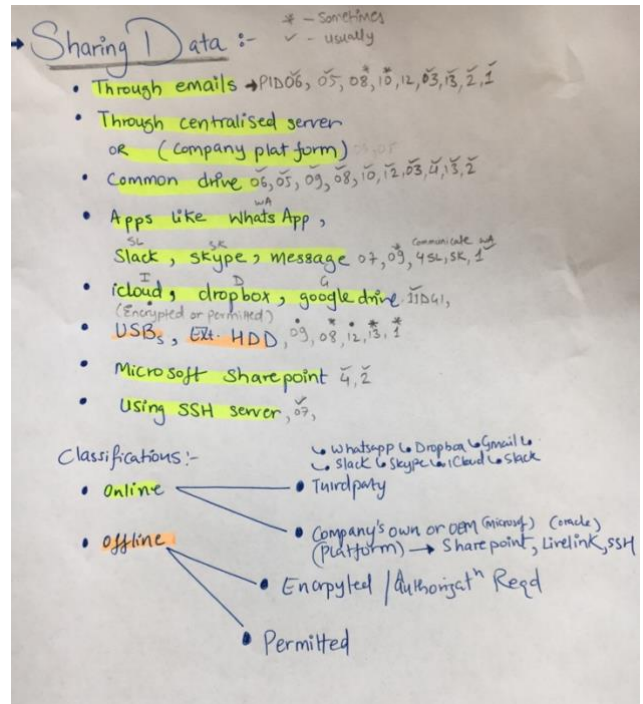 * - Sometimes
✓ - usually
→ Sharing Data :-
• Through emails → PID06, 05, 08, 10, 12, 03, 13, 2, 1
• Through centralised server
OR (Company platform)
• Common drive 06, 05, 09, 08, 10, 12, 03, 4, 13, 2
WA
• Apps like WhatsApp,
SL SK Communicate
Slack, skype, message 07, 09, 4SL, SK, 1
I D G
• icloud, dropbox, google drive 11DGI,
(Encrypted or permitted)
• USBs, Ext. HDD, 09, 08, 12, 13, 1
• Microsoft Sharepoint 4, 2
• Using SSH server, 07,
Classifications:-
↳ Whatsapp ↳ Dropbox ↳ Gmail ↳
↳ Slack ↳ Skype ↳ iCloud ↳ Slack
• Online
• Thirdparty
• Company's own or OEM (Microsof) (oracle)
(Platform) → Sharepoint, Livelink, SSH
• Offline
• Encrpyted / Authorizatn Reqd
• Permitted